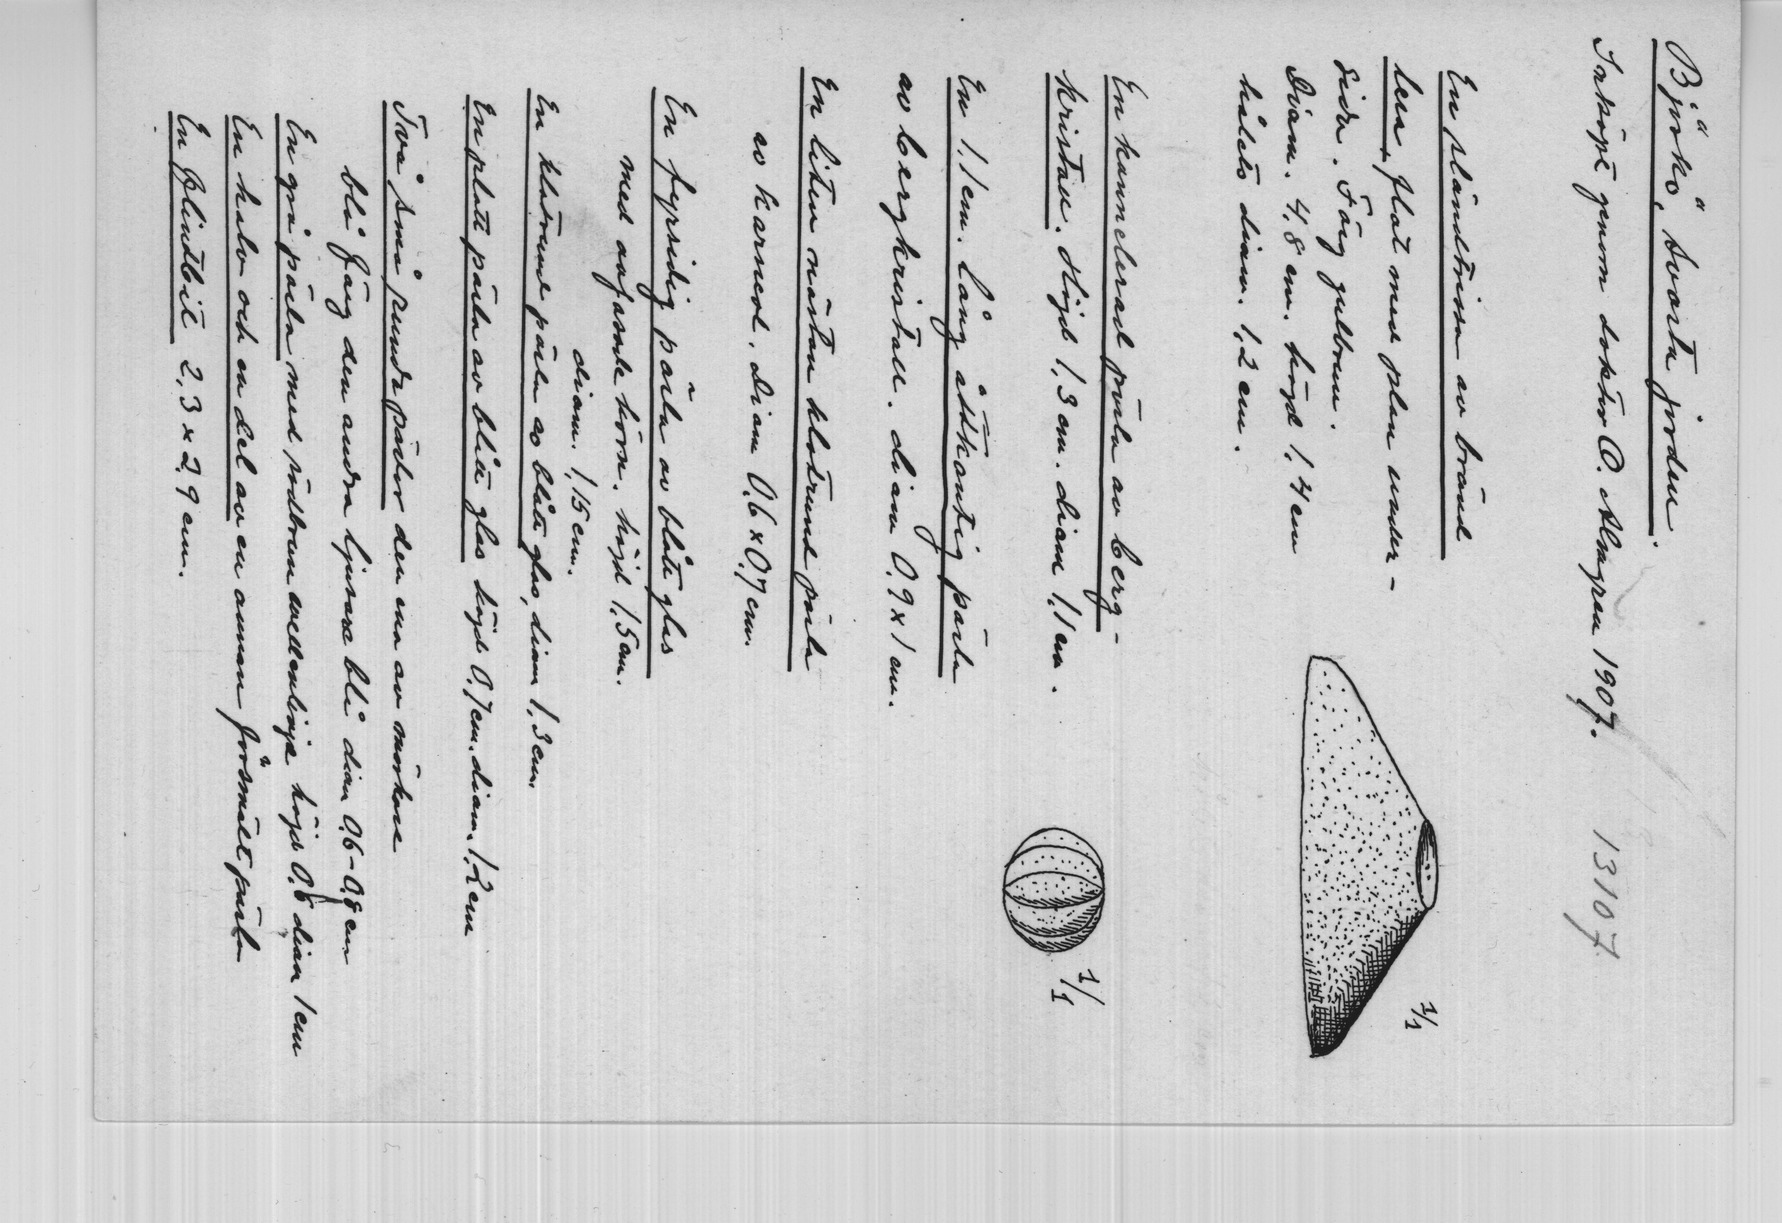 Björkö, Svarta jorden.
Inköpt genom doktor O. Almgren 1907.
13107.
En sländtrissa av bränd
lera, flat med plan under-
sida. Färg gulbrun.
Diam. 4,8 cm. höjd 1,4 cm
hålets diam. 1,2 cm.
1/1
En kannelerad pärla av berg-
kristall. Höjd 1,3 cm. diam 1,1 cm.
1/1
En 1,1 cm. lång åttkantig pärla
av bergkristall. diam 0,9 x 1 cm.
En liten nästan klotrund pärla
av karneol. Diam 0,6 x 0,7 cm.
En fyrsidig pärla av blått glas
med avfasade hörn. höjd 1,5 cm.
diam. 1,15 cm.
En klotrund pärla av blått glas, diam 1,3 cm.
En platt pärla av blått glas höjd 0,7 cm. diam. 1,2 cm
Två små runda pärlor den ena av mörkare
blå färg den andra ljusare blå diam 0,6-0,8 cm
En grå pärla med rödbrun höjd 0,6 diam 1 cm
En halv och en del av en annan förstmält pärla
En flintbit 2,3 x 2,9 cm.